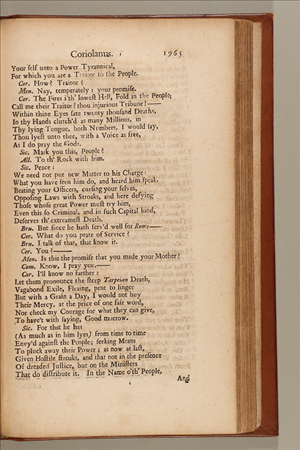 Coriolanus. 1965
Your self unto a Power Tyrannical,
For which you are a Traitor to the People.
Cor. How? Traitor?
Men. Nay, temperately: your promise.
Cor. The Fires i'th' lowest Hell, Fold in the People;
Call me their Traitor! thou injurious Tribune!——
Within thine Eyes sate twenty thousand Deaths,
In thy Hands clutch'd as many Millions, in
Thy lying Tongue, both Numbers, I would say,
Thou lyest unto thee, with a Voice as free,
As I do pray the Gods.
Sic. Mark you this, People?
All. To th' Rock with him.
Sic. Peace:
We need not put new Matter to his Charge:
What you have seen him do, and heard him speak,
Beating your Officers, cursing your selves,
Opposing Laws with Stroaks, and here defying
Those whose great Power must try him,
Even this so Criminal, and in such Capital kind,
Deserves th' extreamest Death.
Bru. But since he hath serv'd well for Rome——
Cor. What do you prate of Service?
Bru. I talk of that, that know it.
Cor. You?——
Men. Is this the promise that you made your Mother?
Com. Know, I pray you——
Cor. I'll know no farther:
Let them pronounce the steep Tarpeian Death,
Vagabond Exile, Fleaing, pent to linger
But with a Grain a Day, I would not buy
Their Mercy, at the price of one fair word,
Nor check my Courage for what they can give,
To have't with saying, Good morrow.
Sic. For that he has
(As much as in him lyes) from time to time
Envy'd against the People; seeking Means
To pluck away their Power; as now at last,
Given Hostile stroaks, and that not in the presence
Of dreaded Justice, but on the Ministers
That do distribute it. In the Name o'th' People,
And